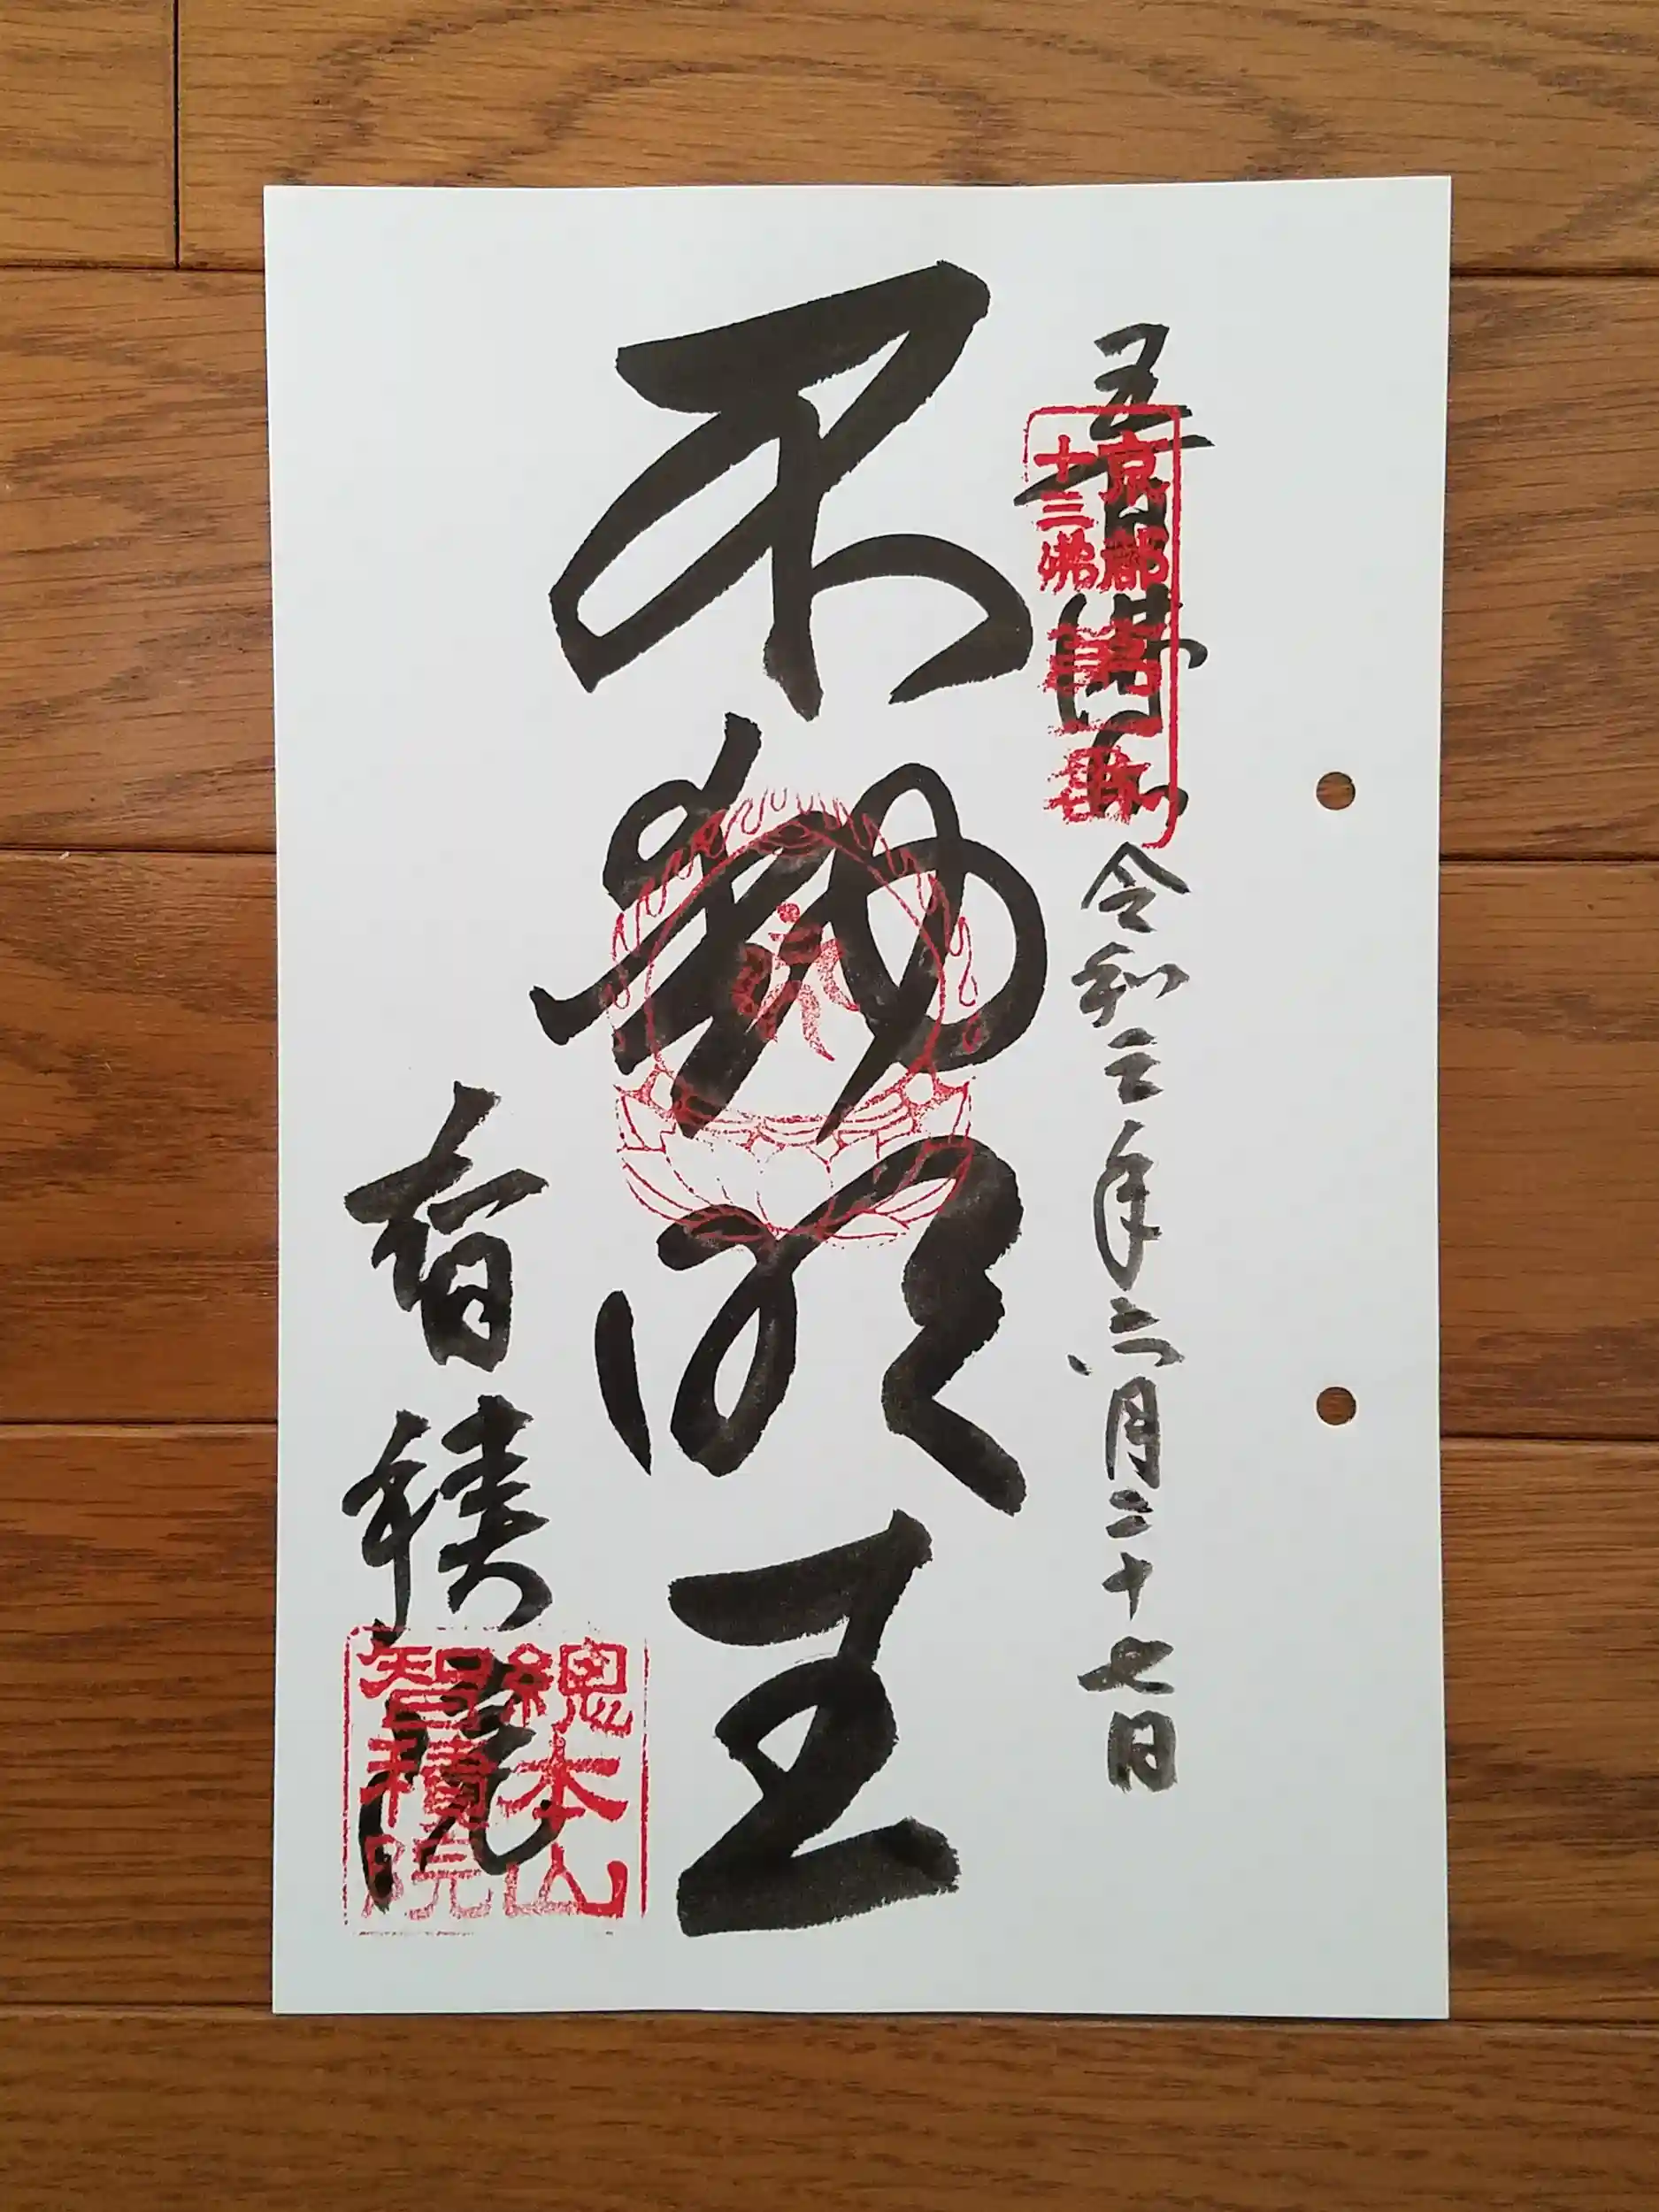 五百佛山
令和三年六月二十七日
京都
十三佛
不動明王
智積院
總本山
智積院